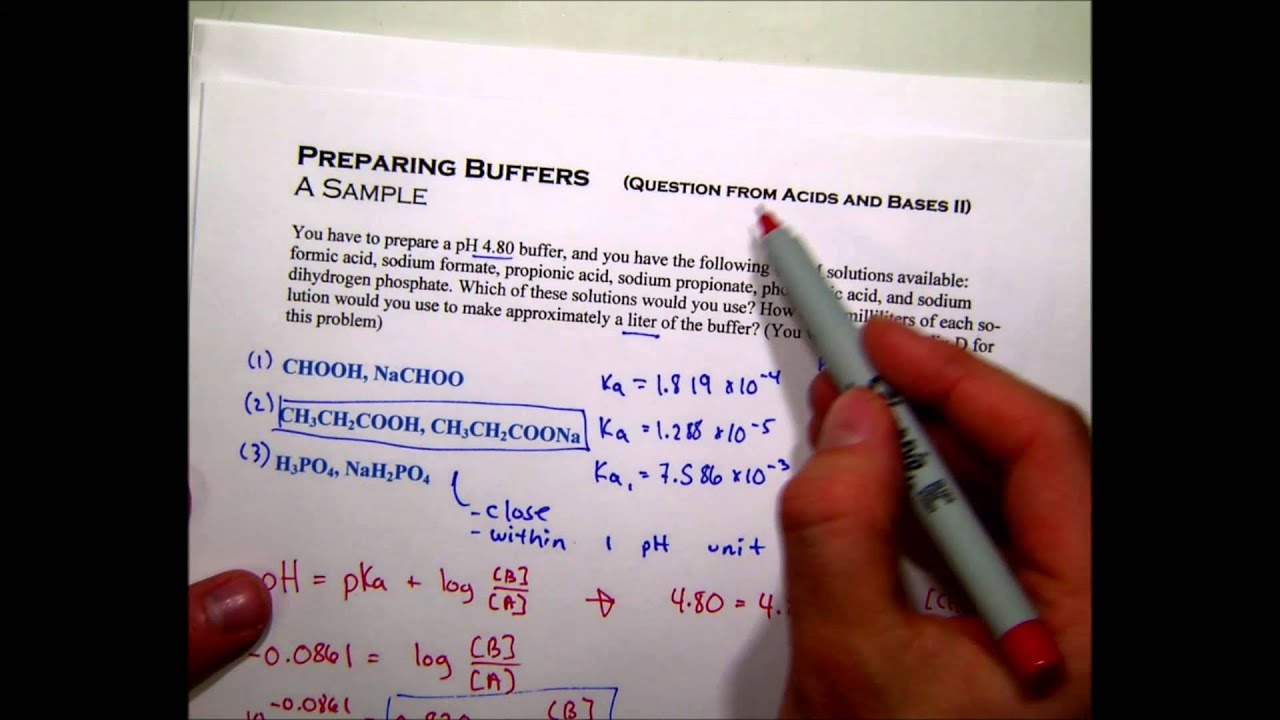 PREPARING BUFFERS (QUESTION FROM ACIDS AND BASES II)
A SAMPLE
You have to prepare a pH 4.80 buffer, and you have the following solutions available:
formic acid, sodium formate, propionic acid, sodium propionate, acid, and sodium
dihydrogen phosphate. Which of these solutions would you use? How milliliters of each so-
lution would you use to make approximately a liter of the buffer? (You D for
this problem)
(1) CHOOH, NaCHOO Ka = 1.819 x10⁻⁴
(2) CH₃CH₂COOH, CH₃CH₂COONa Ka = 1.288 x10⁻⁵
(3) H₃PO₄, NaH₂PO₄ Ka₁ = 7.586 x10⁻³
- close
- within 1 pH unit
pH = pKa + log [B]/[A] → 4.80 = 4.
-0.0861 = log [B]/[A]
-0.0861 [B]